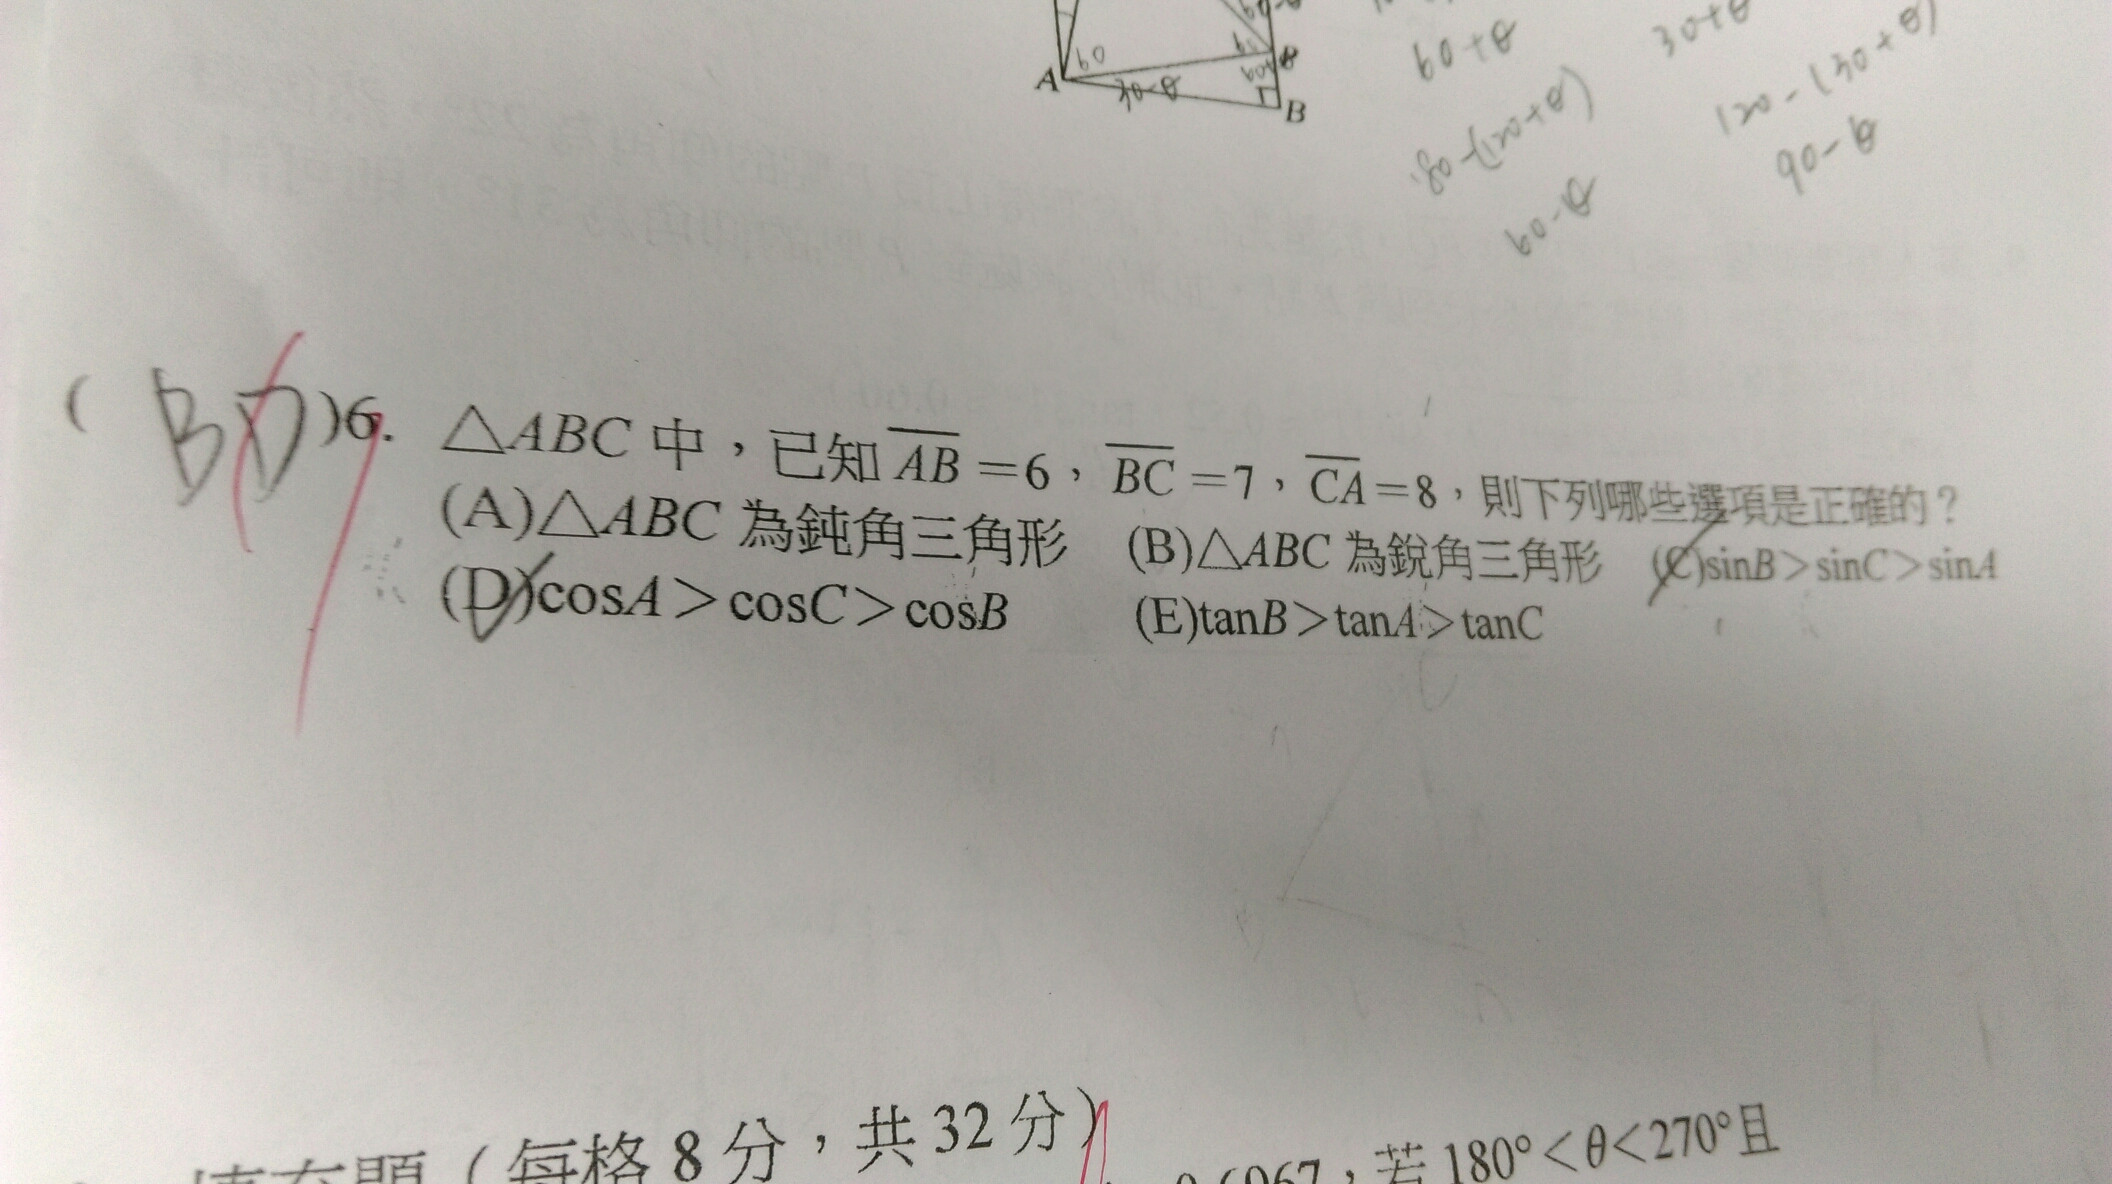 60
A 30-θ B
60+θ
30+θ
180-(120+θ)
60-θ
120-(30+θ)
90-θ
( BD )6. △ABC 中，已知 AB=6，BC=7，CA=8，則下列哪些選項是正確的？
(A)△ABC 為鈍角三角形 (B)△ABC 為銳角三角形 (C)sinB>sinC>sinA
(D)cosA>cosC>cosB (E)tanB>tanA>tanC
(每格 8 分，共 32 分)
，若 180°<θ<270°且